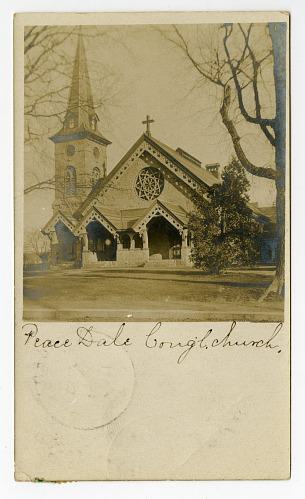 Peace Dale Congl. Church.